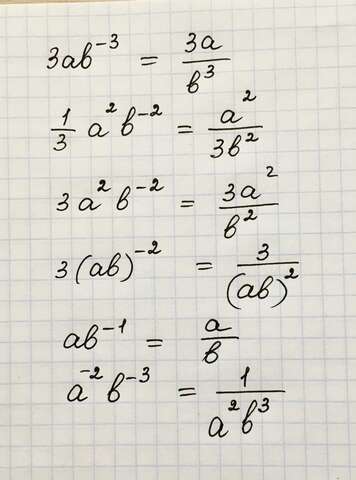 3ab⁻³ = 3a/b³
1/3 a²b⁻² = a²/3b²
3a²b⁻² = 3a²/b²
3(ab)⁻² = 3/(ab)²
ab⁻¹ = a/b
a⁻²b⁻³ = 1/a²b³